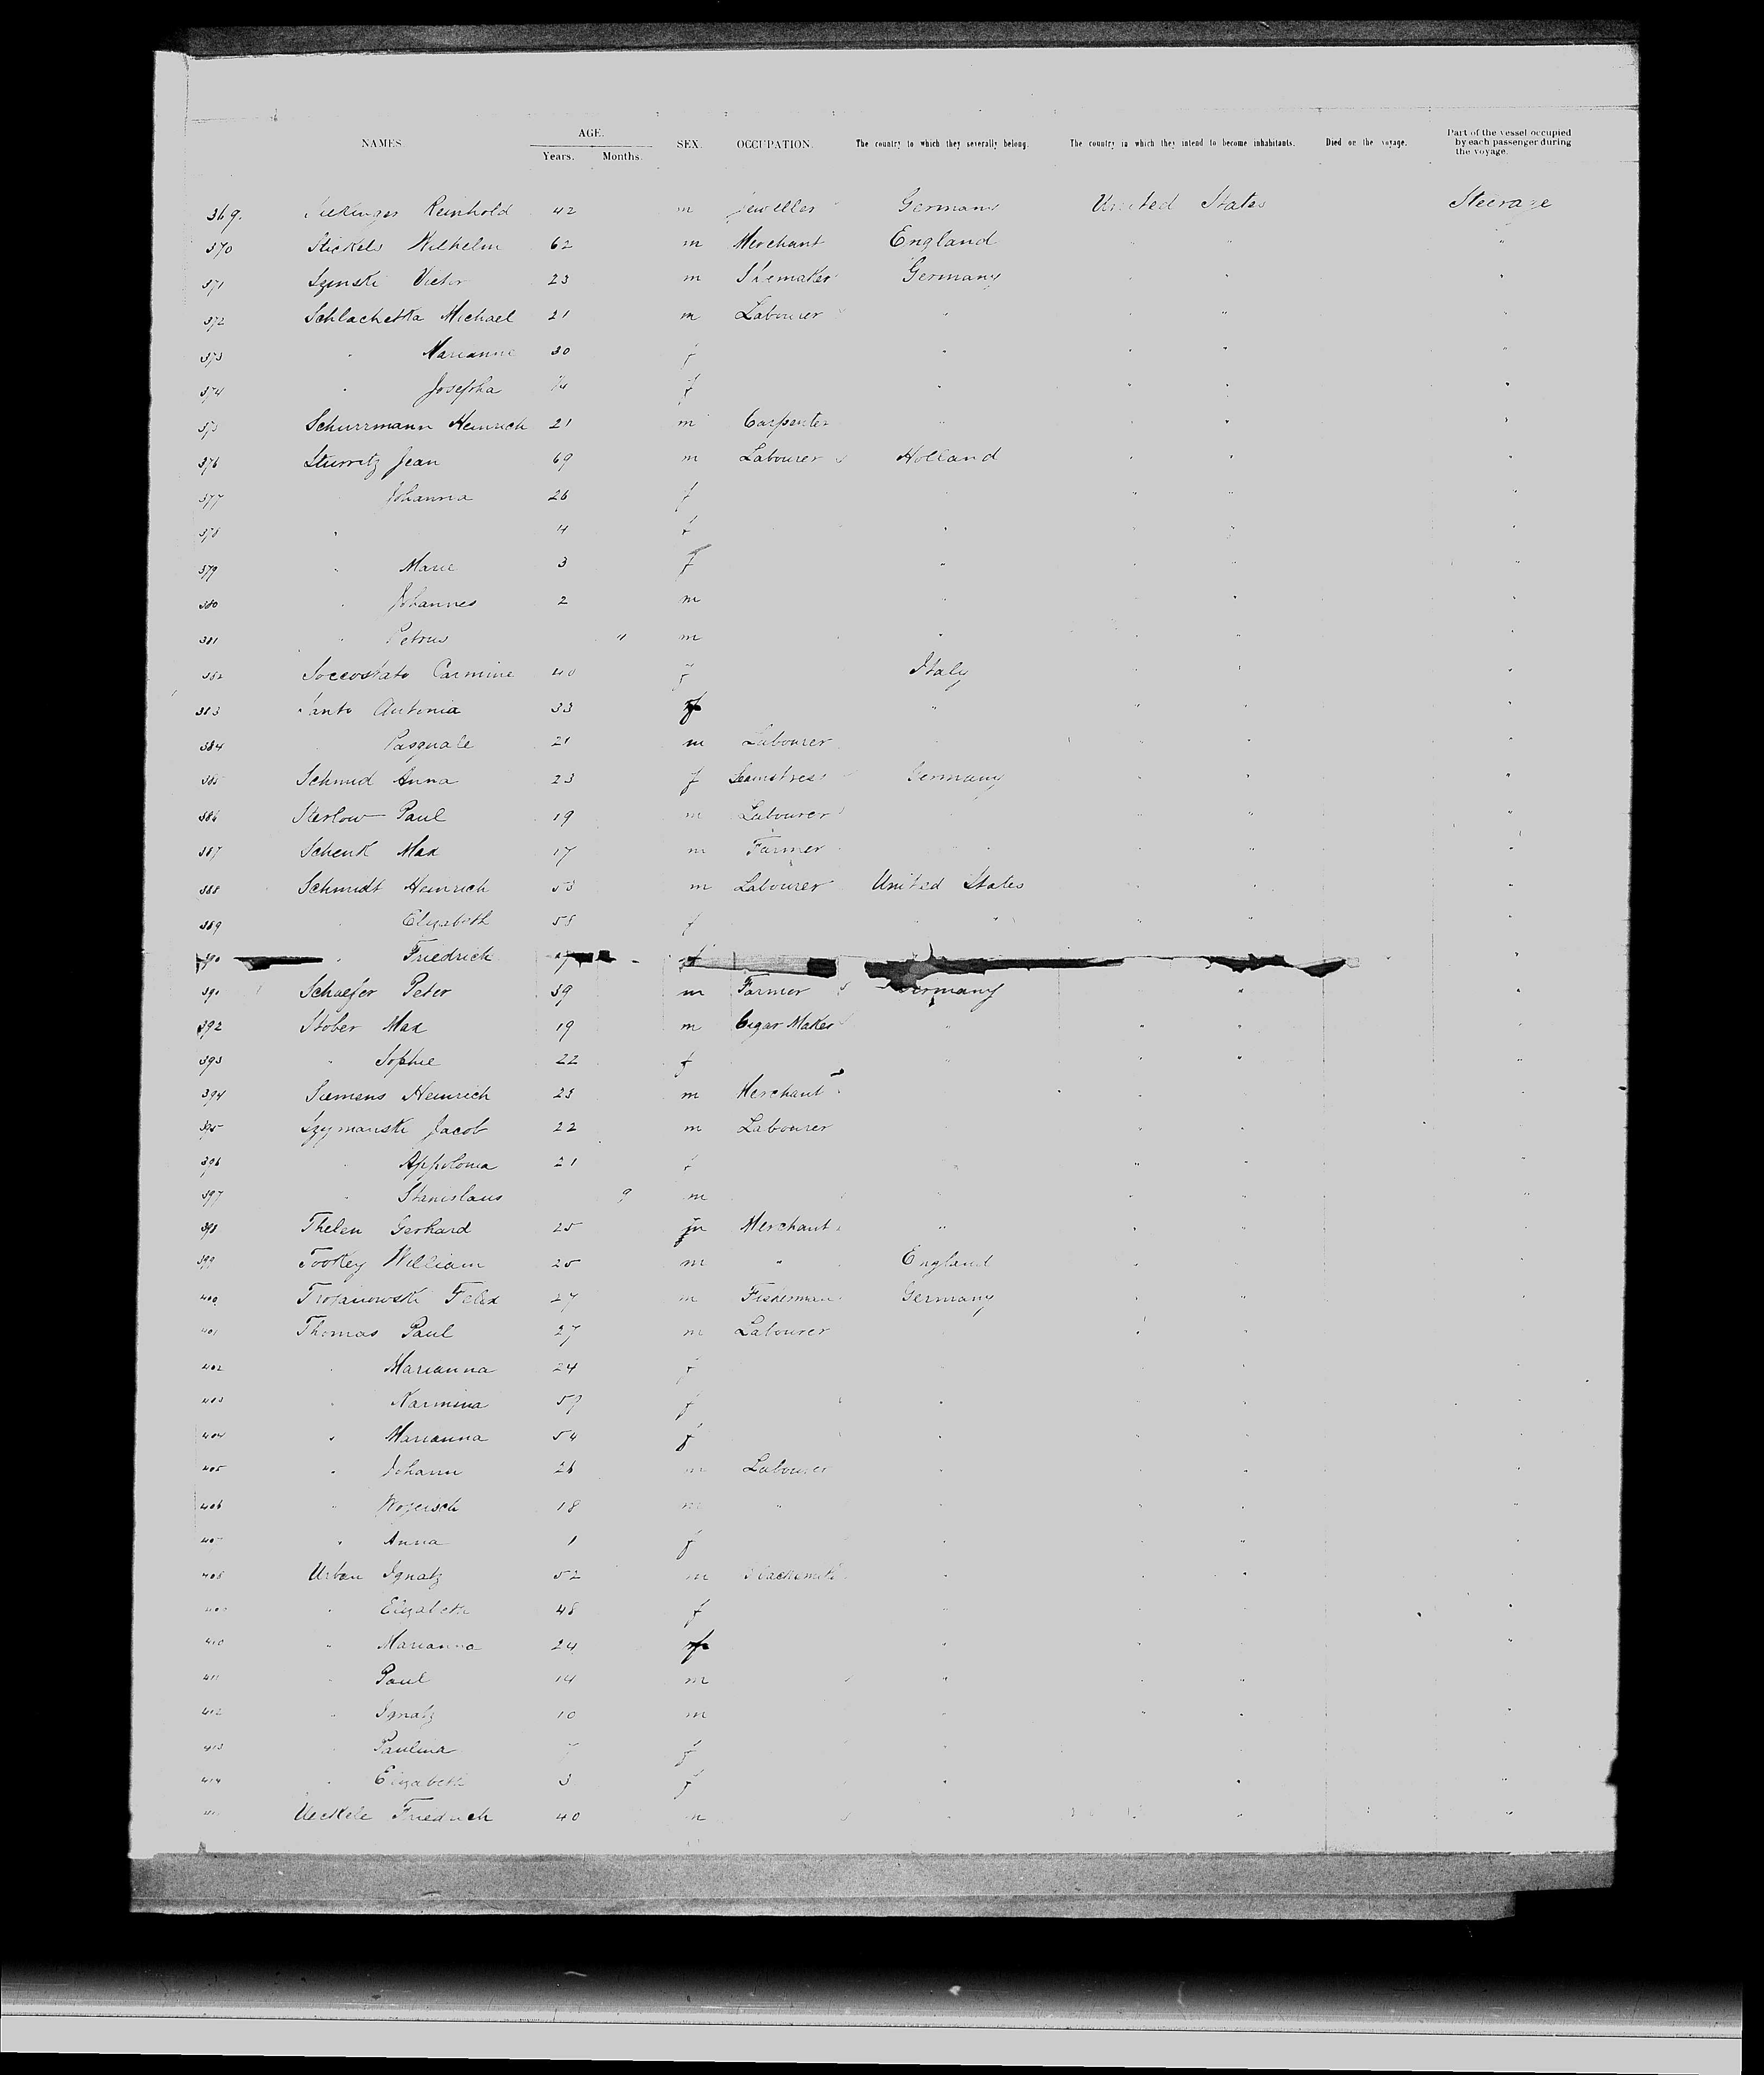 NAMES. AGE. Years. Months. SEX. OCCUPATION. The country to which they severally belong. The country in which they intend to become inhabitants. Died on the voyage. Part of the vessel occupied by each passenger during the voyage.
369. Reinhold 42 m Jeweller Germany United States Steerage
370 Stickels Wilhelm 62 m Merchant England " " "
371 Szinski Victor 23 m Shoemaker Germany " " "
372 Schlachetka Michael 21 m Labourer " " " "
373 " Marianne 30 f " " " "
374 " Josepha f " " " "
375 Schurrmann Heinrich 21 m Carpenter " " " "
376 Sturritz Jean 69 m Labourer Holland " " "
377 " Johanna 26 f " " " "
378 " 4 f " " " "
379 " Marie 3 f " " " "
380 " Johannes 2 m " " " "
381 " Petrus m " " " "
382 Soccostato Carmine 40 f Italy " " "
383 Antonia 33 f " " " "
384 Pasquale 21 m Labourer " " " "
385 Schmid Anna 23 f Seamstress Germany " " "
386 Sterlow Paul 19 m Labourer " " " "
387 Schenk Max 17 m Farmer " " " "
388 Schmidt Heinrich 53 m Labourer United States " " "
389 " Elizabeth 58 f " " " "
390 " Friedrich "
391 Schaefer Peter 39 m Farmer Germany " "
392 Stober Max 19 m Cigar Maker " " " "
393 " Sophie 22 f " " " "
394 Siemens Heinrich 23 m Merchant " " "
395 Szymanski Jacob 22 m Labourer " " "
396 " Appolonia 21 f " " " "
397 " Stanislaus 9 m " " " "
398 Thelen Gerhard 25 m Merchant " " " "
399 Tookey William 25 m " England " " "
400 Trojanowski Felix 27 m Fisherman Germany " " "
401 Thomas Paul 27 m Labourer " " "
402 " Marianna 24 f " " "
403 " Karmina f " " " "
404 " Marianna 54 f " " " "
405 " Johann 26 m Labourer " " " "
406 " 18 m " " " " "
407 " Anna 1 f " " " "
408 Urban Ignatz 52 m Blacksmith " " " "
409 " Elizabeth 48 f " " " "
410 " Marianna 24 f " " " "
411 " Paul 14 m " " " "
412 " Ignatz 10 m " " " "
413 " Paulina 7 f " " " "
414 " Elizabeth 3 f " " " "
Ueckele Friedrich 40 m " " "